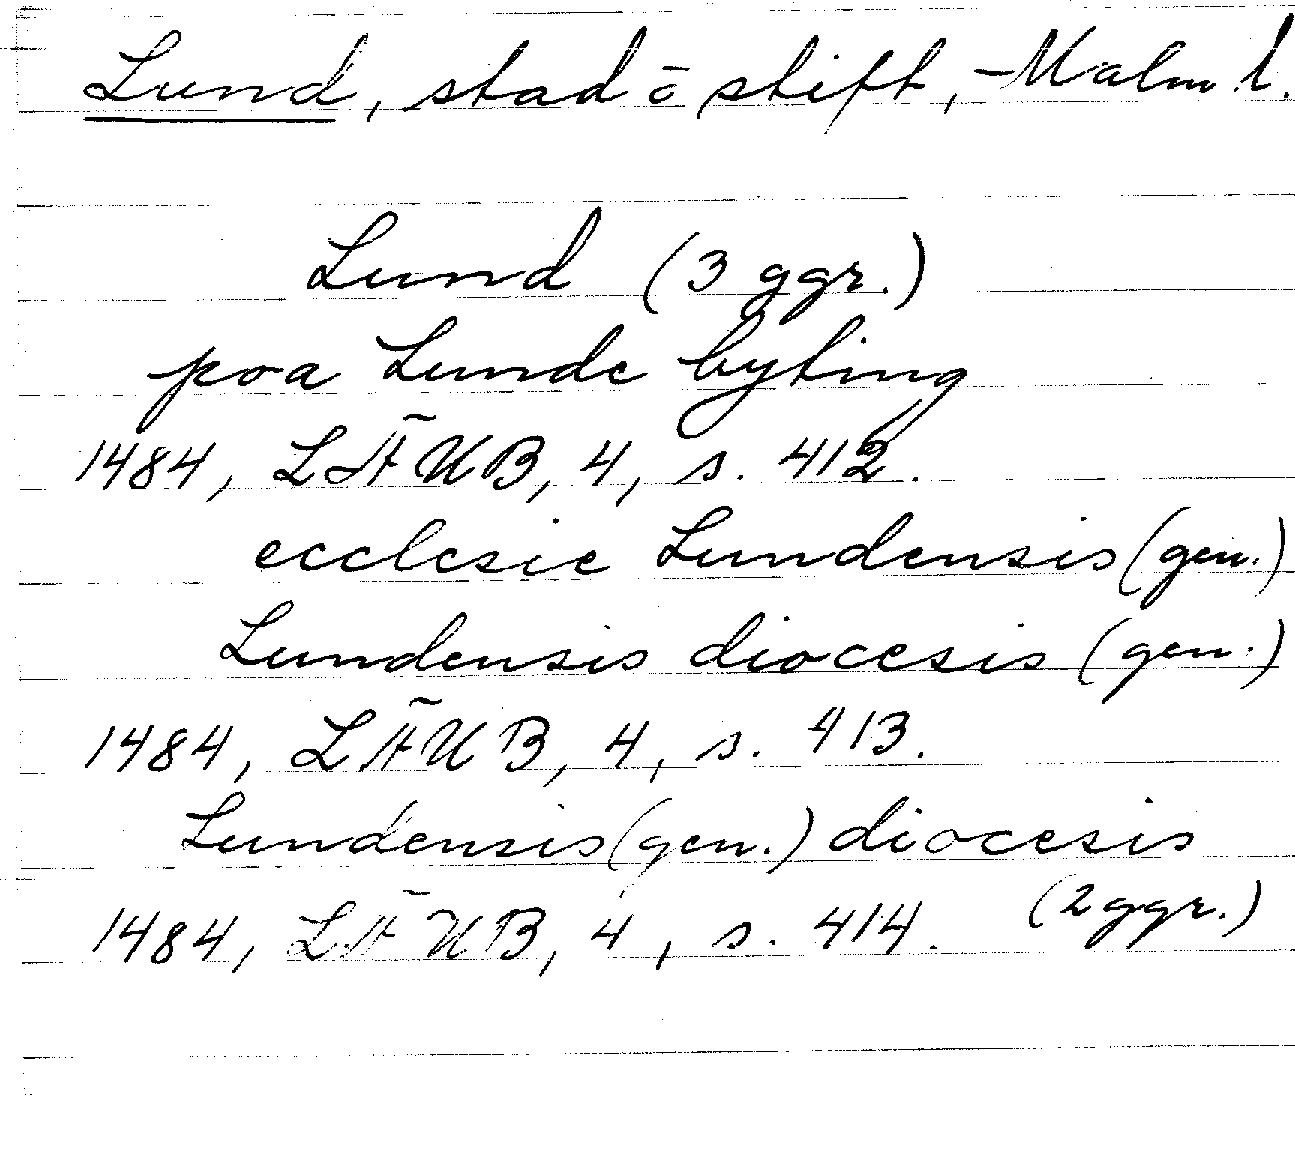 Lund, stad ō stift, Malm l.
Lund (3 ggr.)
poa Lunde byting
1484, LÄUB, 4, s. 412.
ecclesie Lundensis (gen.)
Lundensis diocesis (gen.)
1484, LÄUB, 4, s. 413.
Lundensis (gen.) diocesis
1484, LÄUB, 4, s. 414. (2 ggr.)